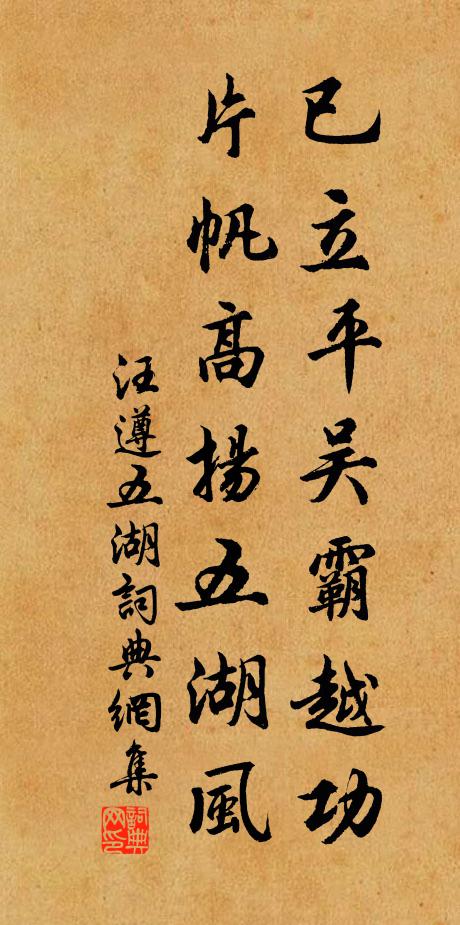 已立平吴霸越功
片帆高揚五湖風
汪遵五湖詞典網集
詞典网印